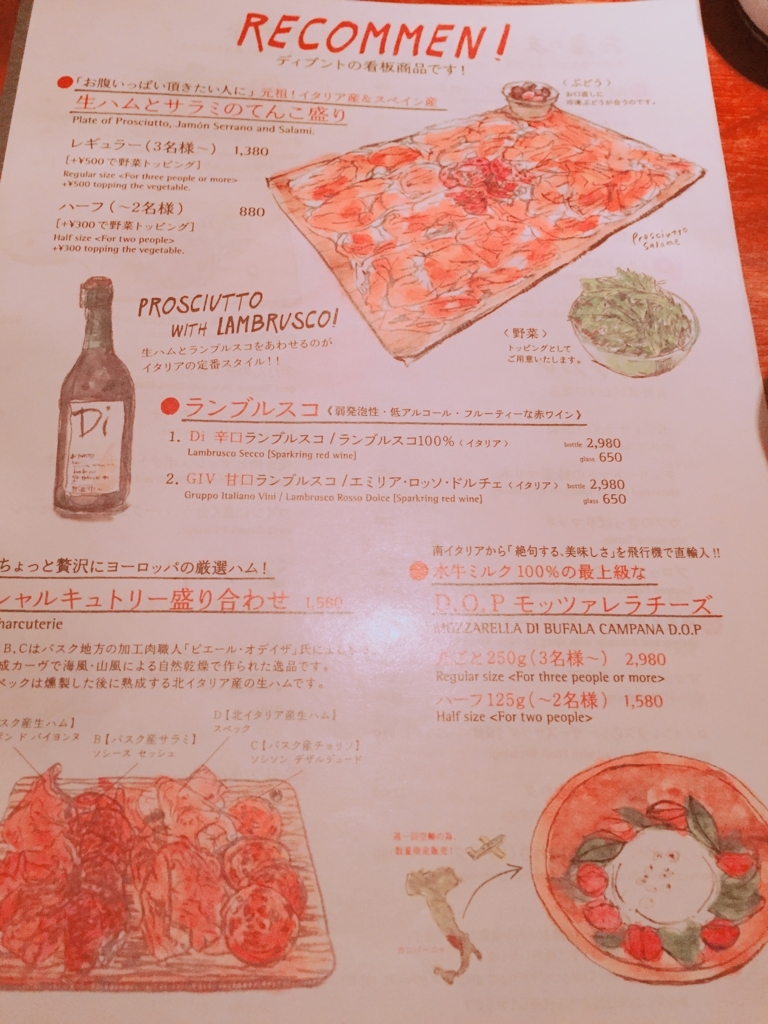 RECOMMEN!
ディプントの看板商品です!
「お腹いっぱい頂きたい人に」元祖!イタリア産&スペイン産
生ハムとサラミのてんこ盛り
Plate of Prosciutto, Jamón Serrano and Salami.
レギュラー(3名様〜) 1,380
[+¥500で野菜トッピング]
Regular size <For three people or more>
+¥500 topping the vegetable.
ハーフ(〜2名様) 880
[+¥300で野菜トッピング]
Half size <For two people>
+¥300 topping the vegetable.
〈ぶどう〉
お口直しに
冷凍ぶどうが合うのです。
Prosciutto
Salame
〈野菜〉
トッピングとして
ご用意いたします。
PROSCIUTTO
WITH LAMBRUSCO!
生ハムとランブルスコをあわせるのが
イタリアの定番スタイル!!
Di
ランブルスコ《弱発泡性・低アルコール・フルーティーな赤ワイン》
1. Di 辛口ランブルスコ/ランブルスコ100%〈イタリア〉 bottle 2,980
Lambrusco Secco [Sparkring red wine] glass 650
2. GIV 甘口ランブルスコ/エミリア・ロッソ・ドルチェ〈イタリア〉 bottle 2,980
Gruppo Italiano Vini / Lambrusco Rosso Dolce [Sparkring red wine] glass 650
ちょっと贅沢にヨーロッパの厳選ハム!
シャルキュトリー盛り合わせ 1,580
harcuterie
B,Cはバスク地方の加工肉職人「ピエール・オデイザ」氏に
成カーヴで海風・山風による自然乾燥で作られた逸品です。
ペックは燻製した後に熟成する北イタリア産の生ハムです。
スク産生ハム】
ン ド バイヨンヌ
B【バスク産サラミ】
ソシース セッシュ
D【北イタリア産生ハム】
スペック
C【バスク産チョリソ】
ソシソン デザルデュード
南イタリアから「絶句する、美味しさ」を飛行機で直輸入!!
水牛ミルク100%の最上級な
D.O.P モッツァレラチーズ
MOZZARELLA DI BUFALA CAMPANA D.O.P
丸ごと250g(3名様〜) 2,980
Regular size <For three people or more>
ハーフ125g(〜2名様) 1,580
Half size <For two people>
週一回空輸の為、
数量限定販売!
カンパーニャ